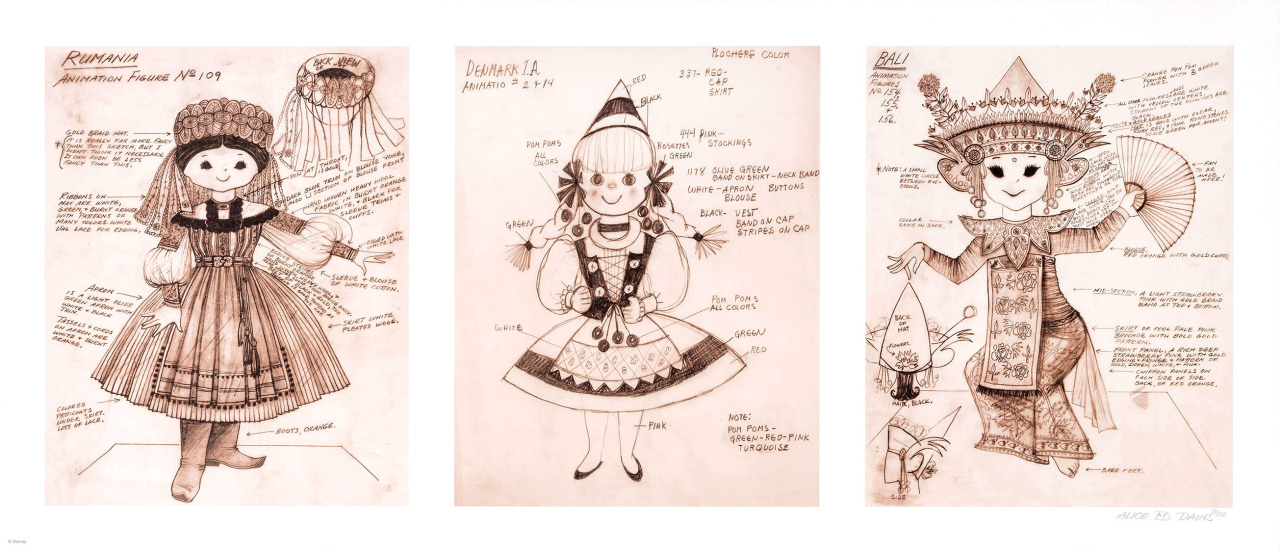 RUMANIA
ANIMATION FIGURE Nº 109
BACK VIEW
OF
GOLD BRAID HAT.
* IT IS REALLY FAR MORE FANCY
THAN THIS SKETCH, BUT I
DIDN'T THINK IT NECESSARY.
IT CAN EVEN BE LESS
FANCY THAN THIS.
THROAT,
PIN
IS GOLD
DARK BLUE TRIM ON BLOUSE YOKE,
ALSO V SECTION OF BLOUSE FRONT
HAND WOVEN HEAVY WOOL
FABRIC IN BURNT ORANGE
WHITE + BLACK FOR
SLEEVE TRIMS +
CUFFS.
RIBBONS ON
HAT ARE WHITE,
GREEN, + BURNT ORANGE
WITH PATTERNS OF
MANY COLORS. WHITE
VAL LACE FOR EDGING.
WHITE LACE
SLEEVE + BLOUSE
OF WHITE COTTON.
APRON
IS A LIGHT OLIVE
GREEN APRON WITH
WHITE + BLACK
TRIM.
TASSELS + CORDS
ON APRON ARE
WHITE + BURNT
ORANGE.
SKIRT WHITE
PLEATED WOOL.
COLORED
PETTICOATS
UNDER SKIRT.
LOTS OF LACE.
BOOTS, ORANGE.
DENMARK I.A
ANIMATIO # 2 + 14
PLOCHERE COLOR
337- RED-
CAP
SKIRT
RED
BLACK
POM POMS
ALL
COLORS
ROSATTES
GREEN
444 PINK-
STOCKINGS
1178 OLIVE GREEN
BAND ON SKIRT-NECK BAND
WHITE-APRON BUTTONS
BLOUSE
BLACK- VEST
BAND ON CAP
STRIPES ON CAP
GREEN
POM POMS
ALL COLORS
WHITE
GREEN
RED
PINK
NOTE:
POM POMS-
GREEN-RED-PINK
TURQUOISE
BALI
ANIMATION
FIGURES
Nº 154
155
156.
ORANGE POM POM
FLOWER WITH 3 GREEN
LEAVES.
ALL OTHER FLOWERS ARE WHITE
WITH YELLOW CENTERS.
*NOTE: A SMALL
WHITE CIRCLE
BETWEEN EYE-
BROWS.
FAN
TO BE
MADE
HERE!
COLLAR
SAME IN BACK.
BLOUSE,
RED ORANGE WITH GOLD CUFF.
MID-SECTION, A LIGHT STRAWBERRY
PINK WITH GOLD BRAID
BAND AT TOP + BOTTOM.
BACK
OF
HAT.
FLOWERS
SKIRT OF COOL PALE PINK
BROCADE WITH BOLD GOLD
PATTERN.
FRONT PANEL, A RICH DEEP
STRAWBERRY PINK WITH GOLD
EDGING + FRINGE + PATTERN OF
GOLD, GREEN, WHITE, + PINK.
CHIFFON PANELS ON
EACH SIDE OF SIDE
BACK, OF RED ORANGE.
HAIR, BLACK.
BARE FEET.
SIDE
ALICE DAVIS
© Disney